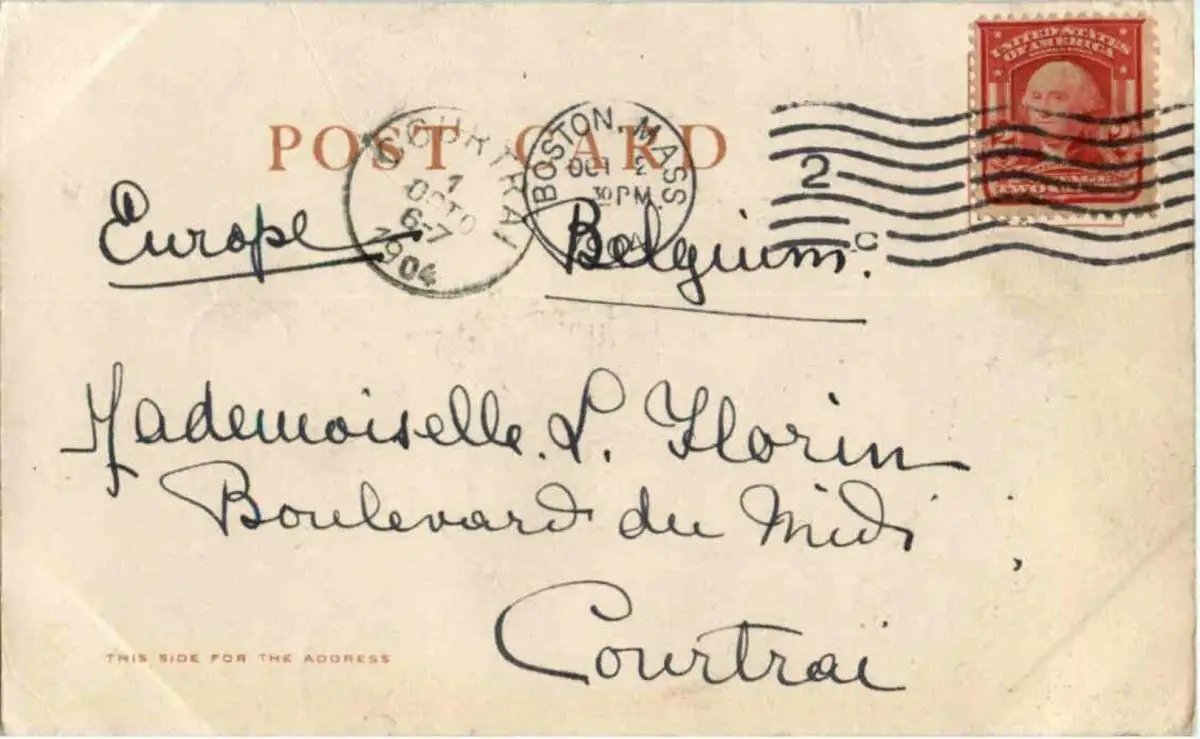 POST CARD
COURTRAI
1
OCTO
6-7
1904
BOSTON, MASS
OCT 2
30 PM
2
C
UNITED STATES
OF AMERICA
TWO
Europe Belgium.
Mademoiselle L. Florin
Boulevard du Midi
Courtrai
THIS SIDE FOR THE ADDRESS